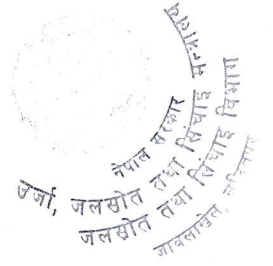 नेपाल सरकार
उर्जा, जलस्रोत तथा सिंचाई मन्त्रालय
जलस्रोत तथा सिंचाई विभाग
जावलाखेल, ललितपुर